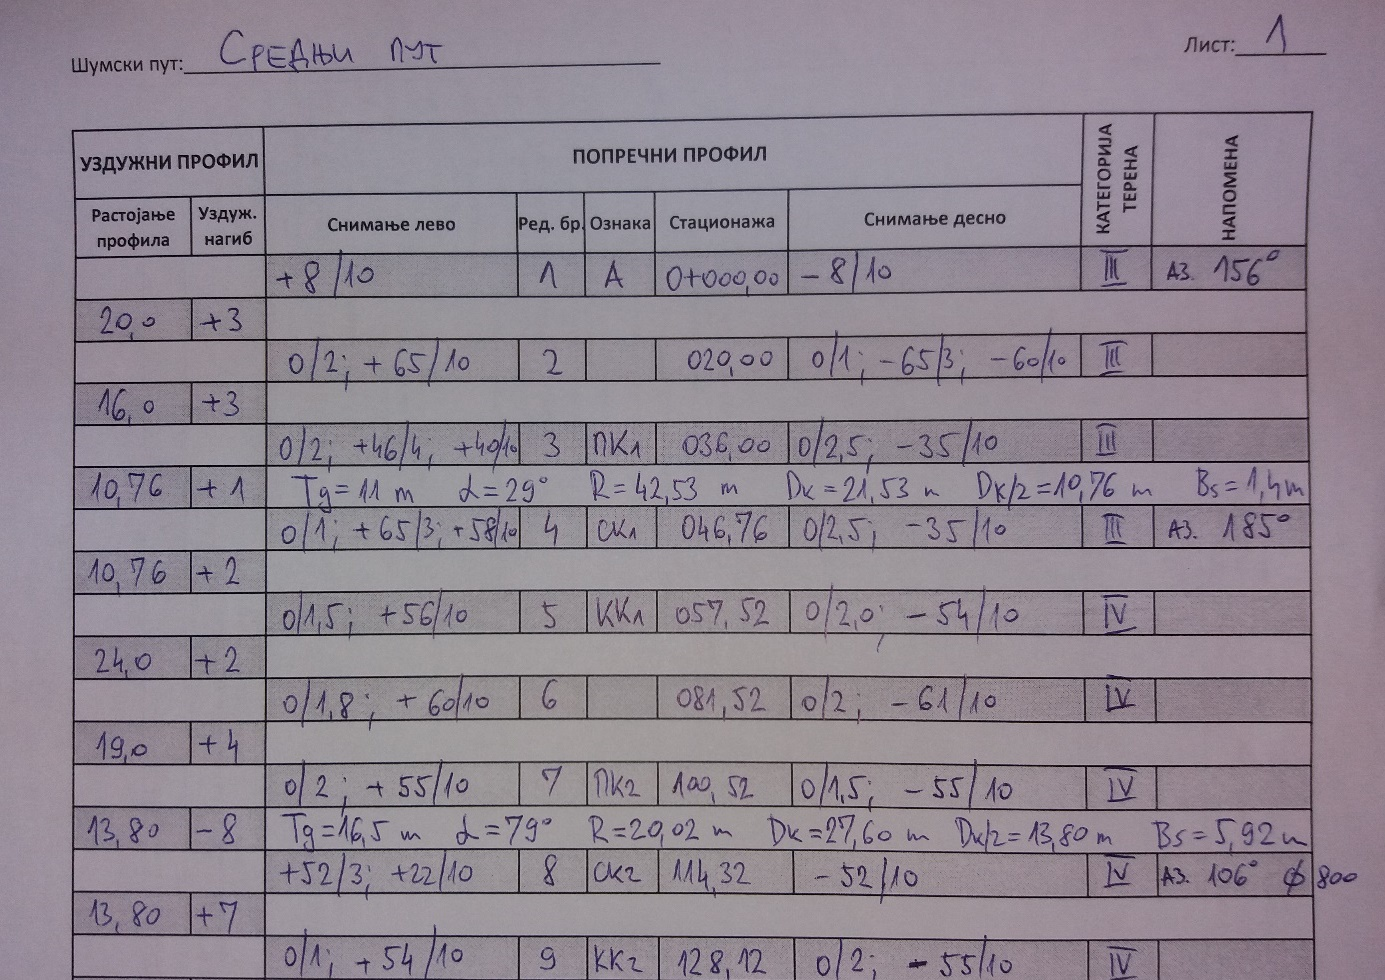 Шумски пут: Средњи пут Лист: 1
УЗДУЖНИ ПРОФИЛ ПОПРЕЧНИ ПРОФИЛ КАТЕГОРИЈА ТЕРЕНА НАПОМЕНА
Растојање профила Уздуж. нагиб Снимање лево Ред. бр. Ознака Стационажа Снимање десно
+8/10 1 А 0+000,00 -8/10 III Аз. 156°
20,0 +3
0/2; +65/10 2 020,00 0/1; -65/3; -60/10 III
16,0 +3
0/2; +46/4; +40/10 3 ПКл 036,00 0/2,5; -35/10 III
10,76 +1 Tg=11 m α=29° R=42,53 m Dк=21,53 m Dк/2=10,76 m Bs=1,4m
0/1; +65/3; +58/10 4 СКл 046,76 0/2,5; -35/10 III Аз. 185°
10,76 +2
0/1,5; +56/10 5 ККл 057,52 0/2,0; -54/10 IV
24,0 +2
0/1,8; +60/10 6 081,52 0/2; -61/10 IV
19,0 +4
0/2; +55/10 7 ПКг 100,52 0/1,5; -55/10 IV
13,80 -8 Tg=16,5 m α=79° R=20,02 m Dк=27,60 m Dк/2=13,80 m Bs=5,92 m
+52/3; +22/10 8 СКг 114,32 -52/10 IV Аз. 106° ϕ800
13,80 +7
0/1; +54/10 9 ККг 128,12 0/2; -55/10 IV